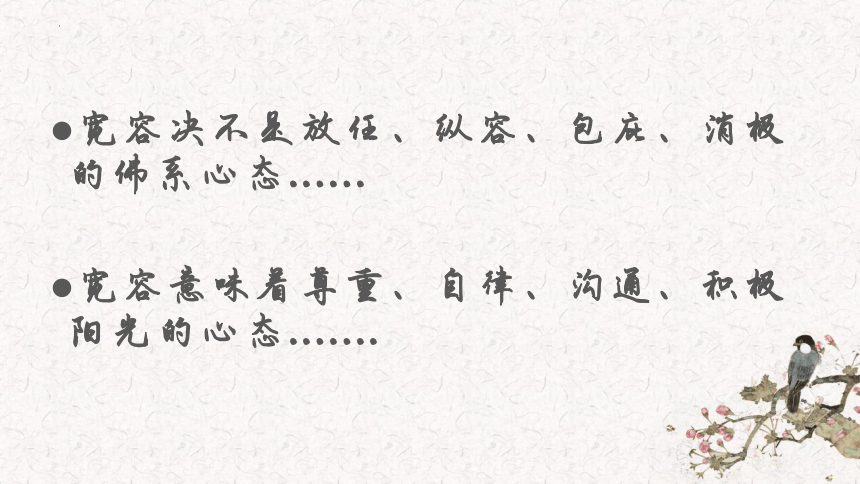 ●宽容决不是放任、纵容、包庇、消极
的佛系心态……
●宽容意味着尊重、自律、沟通、积极
阳光的心态…….